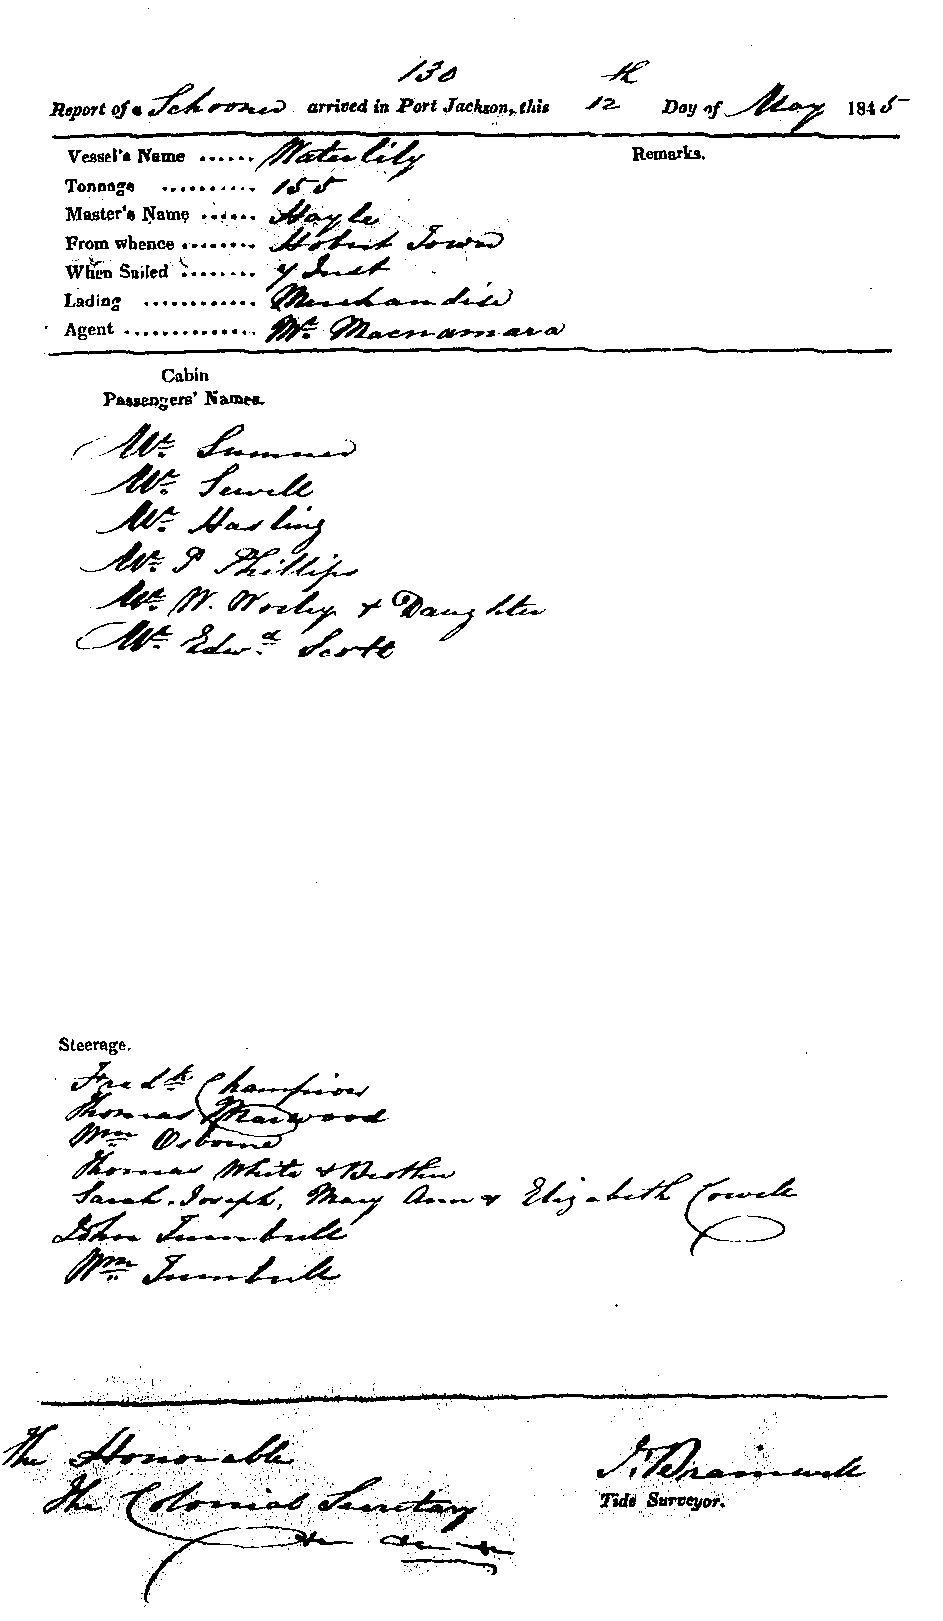 130
Report of a Schooner arrived in Port Jackson, this 12th Day of May 1845
Vessel's Name ...... Waterlily
Remarks.
Tonnage .......... 155
Master's Name ...... Hayle
From whence ........ Hobart Town
When Sailed ........ 7 Inst
Lading ............ Merchandise
Agent ............. Mr. Macnamara
Cabin
Passengers' Names.
Mr. Sumner
Mr. Sewell
Mr. Hasling
Mr. P Phillips
Mr. W. Worley & Daughter
Mr. Edwd. Scott
Steerage.
Fredk Champion
Thomas Marwood
Wm Osborne
Thomas White & Brother
Sarah, Joseph, Mary Ann & Elizabeth Cowell
John Turnbull
Wm Turnbull
The Honorable
The Colonial Secretary
J. Bramwell
Tide Surveyor.